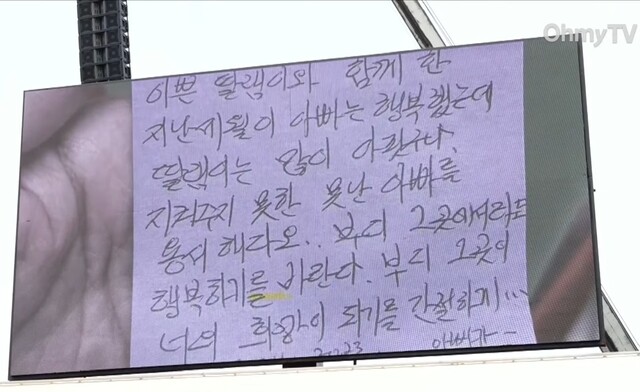 OhmyTV
이쁜 딸램이와 함께 한
지난세월이 아빠는 행복했는데
딸램이는 많이 아팠구나.
지켜주지 못한 못난 아빠를
용서해다오.. 부디 그곳에서라도
행복하기를 바란다. 부디 그곳이
너의 희망이 되기를 간절하게...
아빠가~